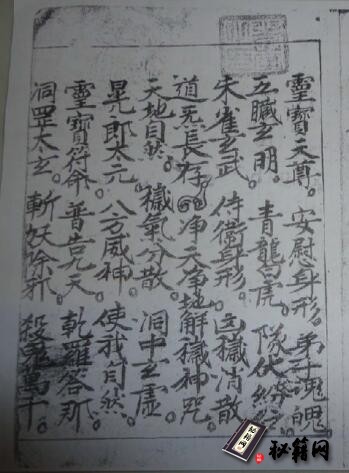 靈寶天尊。安慰身形。弟子魂魄
五臟玄明。青龍白虎。隊伏紛紜
朱雀玄武。侍衛身形。凶穢消散
道炁長存。净天净地解穢神咒
天地自然。穢氣分散。洞中玄虛
晃郎太元。八方威神。使我自然。
靈寶符命。普告九天。乾羅答那
洞罡太玄。斬妖除邪。殺鬼萬千。
秘籍网